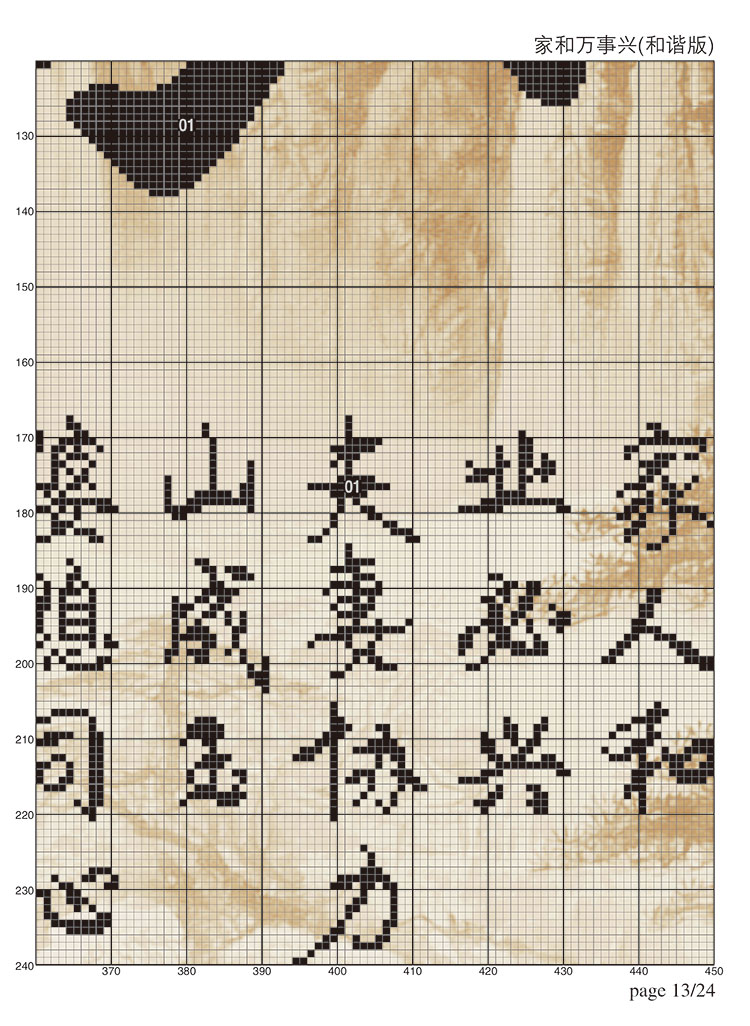 家和万事兴(和谐版)
01
130
140
150
160
170
180
190
200
210
220
230
240
01
家人和
业必兴
夫妻协力
山成玉
婆媳同心
370 380 390 400 410 420 430 440 450
page 13/24